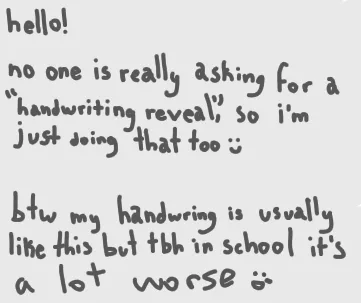 hello!
no one is really asking for a
"handwriting reveal", so i'm
just doing that too :)
btw my handwring is usually
like this but tbh in school it's
a lot worse :(